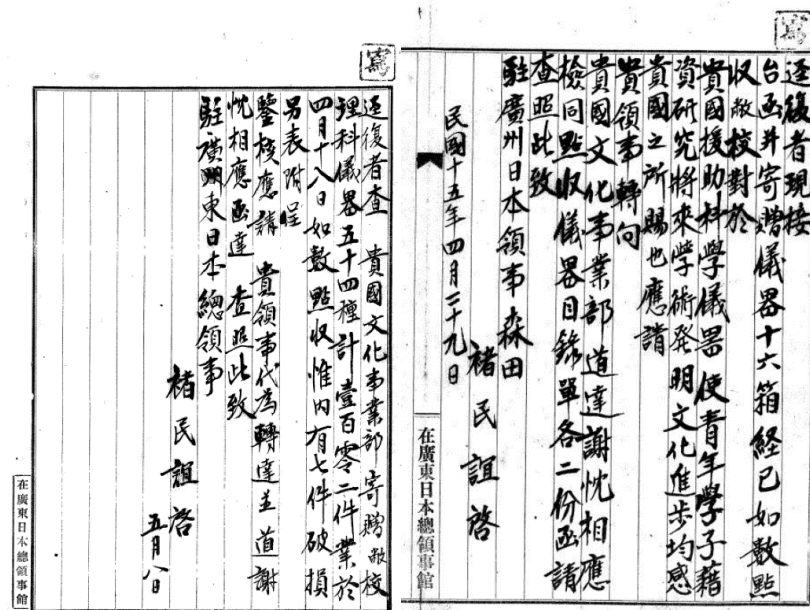 寫
逕復者現接
台函并寄贈儀器十六箱経已如數點
収敝校對於
貴國援助科学儀器使青年學子藉
資研究將來學術発明文化進步均感
貴國之所賜也應請
貴領事轉向
貴國文化事業部道達謝忱相應
檢同點収儀器目錄單各二份函請
查照此致
駐廣州日本領事森田
褚民誼啓
民國十五年四月二十九日
在廣東日本總領事館
寫
逕復者查 貴國文化事業部寄贈敝校
理科儀器五十四種計壹百零二件業於
四月十八日如數點収惟内有七件破損
另表附呈
鑒核應請 貴領事代為轉達並道謝
忱相應函達 查照此致
駐廣東日本總領事
褚民誼啓
五月八日
在廣東日本總領事館